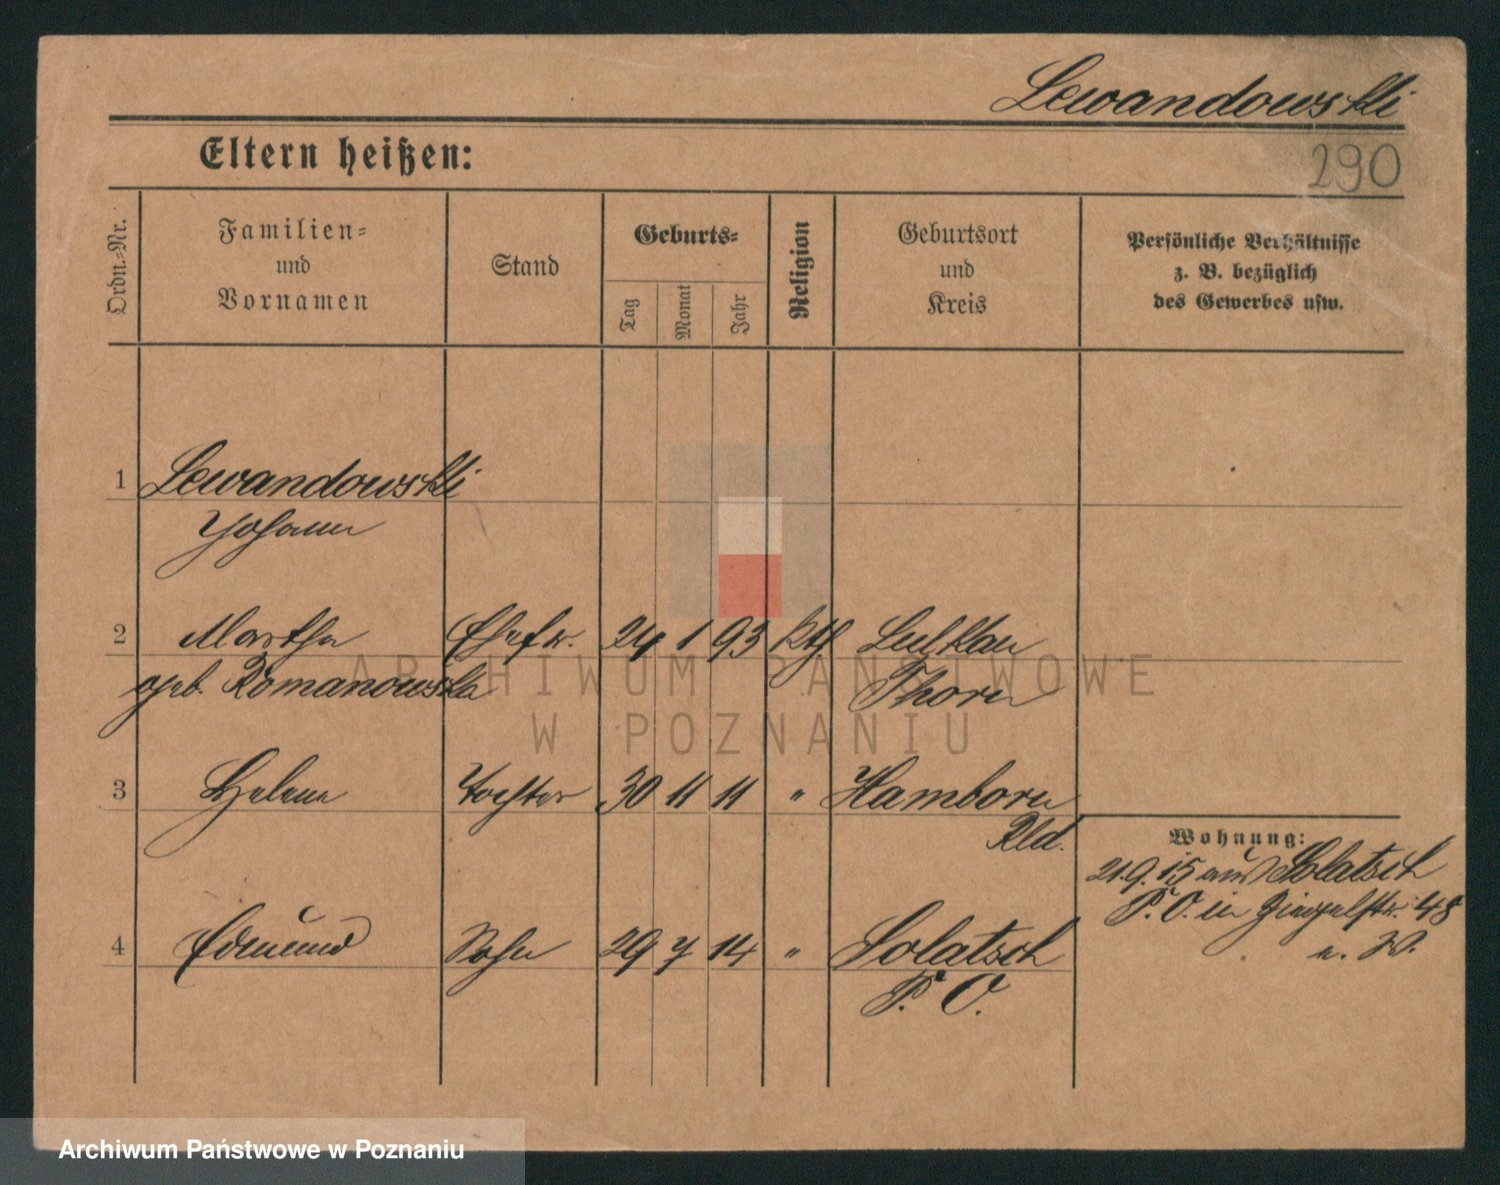 Lewandowski
290
Eltern heißen:
Ordn.-Nr.
Familien-
und
Vornamen
Stand
Geburts-
Tag
Monat
Jahr
Religion
Geburtsort
und
Kreis
Persönliche Verhältnisse
z. B. bezüglich
des Gewerbes usw.
1 Lewandowski
Johann
2 Martha Ehefr. 24 1 93 kth Lulkau
geb. Romanowska Thorn
3 Helene Tochter 30 11 11 " Hamborn
Rld.
Wohnung:
21.9.15 aus Solatsch
P. O. in Ziegelstr. 48
4 Edmund Sohn 29 7 14 " Solatsch
P. O.
ARCHIWUM PAŃSTWOWE
W POZNANIU
Archiwum Państwowe w Poznaniu